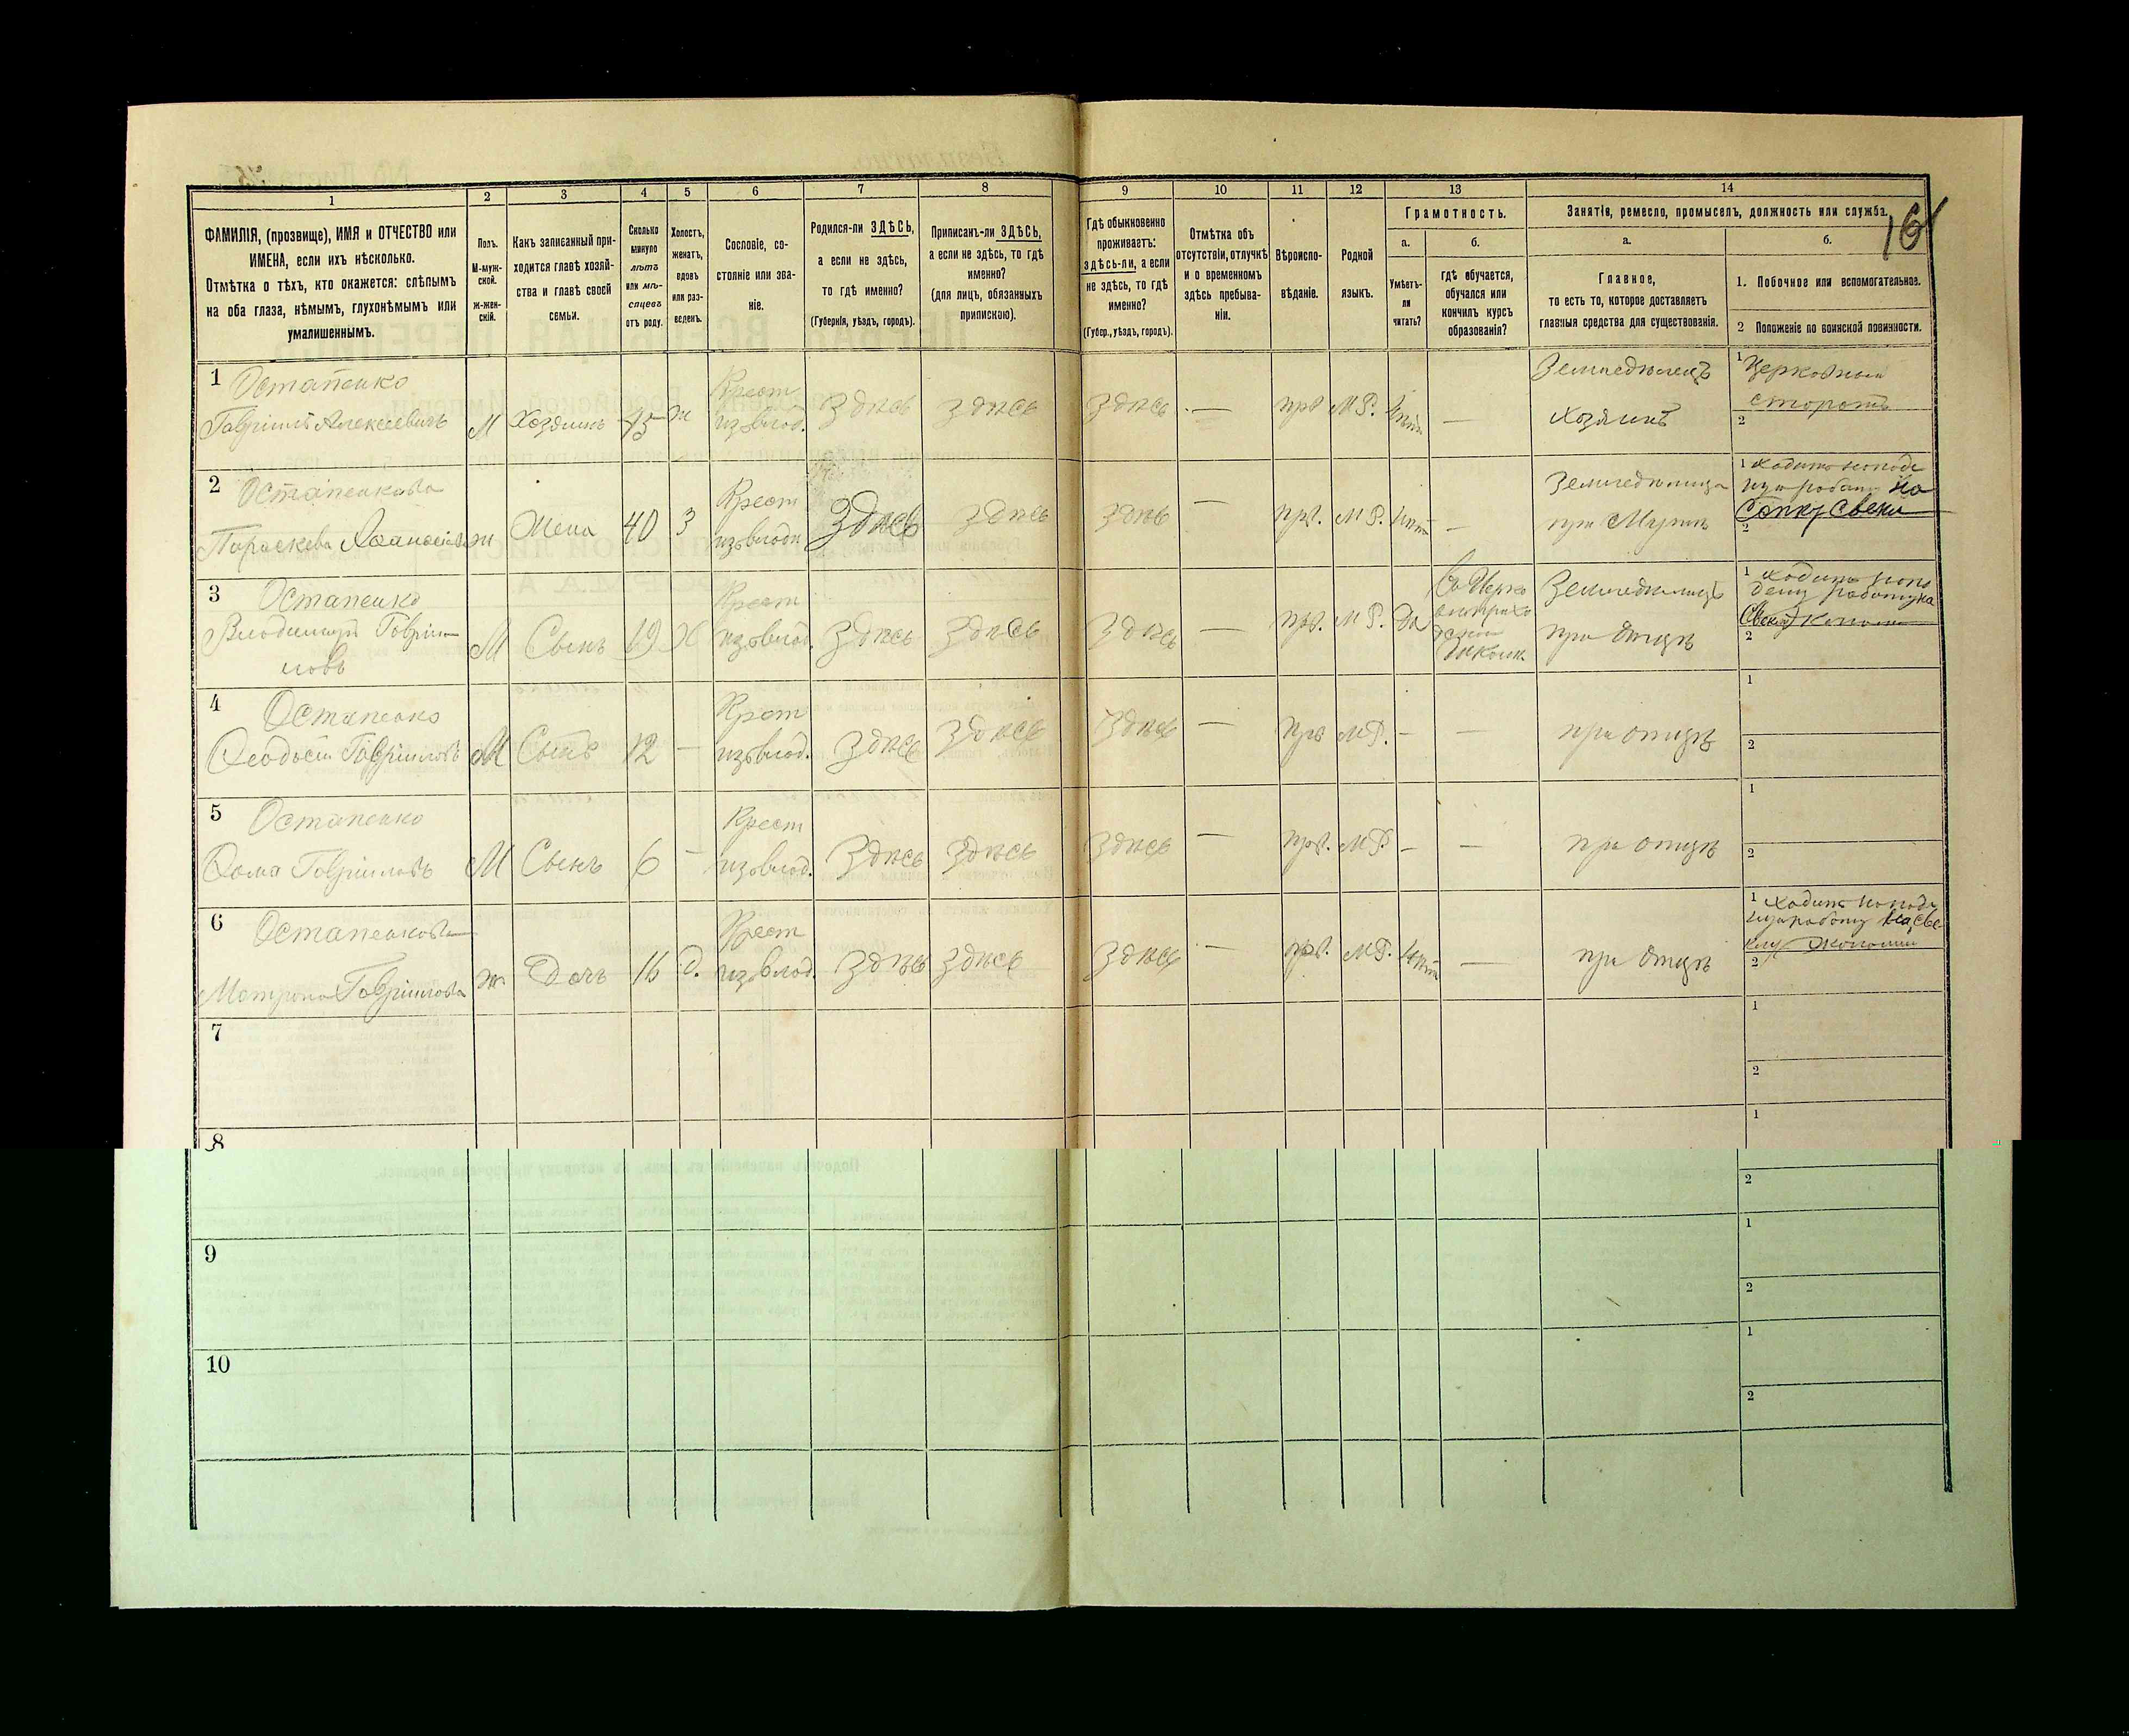 1
2
3
4
5
6
7
8
9
10
11
12
13
14
16
ФАМИЛІЯ, (прозвище), ИМЯ и ОТЧЕСТВО или
ИМЕНА, если ихъ нѣсколько.
Отмѣтка о тѣхъ, кто окажется: слѣпымъ
на оба глаза, нѣмымъ, глухонѣмымъ или
умалишеннымъ.
Полъ.
М-муж-
ской.
Ж-жен-
скій.
Какъ записанный при-
ходится главѣ хозяй-
ства и главѣ своей
семьи.
Сколько
минуло
лѣтъ
или мѣ-
сяцевъ
отъ роду.
Холостъ,
женатъ,
вдовъ
или раз-
веденъ.
Сословіе, со-
стояніе или зва-
ніе.
Родился-ли ЗДѢСЬ,
а если не здѣсь,
то гдѣ именно?
(Губернія, уѣздъ, городъ).
Приписанъ-ли ЗДѢСЬ,
а если не здѣсь, то гдѣ
именно?
(для лицъ, обязанныхъ
припискою).
Гдѣ обыкновенно
проживаетъ:
здѣсь-ли, а если
не здѣсь, то гдѣ
именно?
(Губер., уѣздъ, городъ).
Отмѣтка объ
отсутствіи, отлучкѣ
и о временномъ
здѣсь пребыва-
ніи.
Вѣроиспо-
вѣданіе.
Родной
языкъ.
Грамотность.
а.
Умѣетъ-
ли
читать?
б.
гдѣ обучается,
обучался или
кончилъ курсъ
образованія?
Занятія, ремесло, промыселъ, должность или служба.
а.
Главное,
то есть то, которое доставляетъ
главныя средства для существованія.
б.
1. Побочное или вспомогательное.
2 Положеніе по воинской повинности.
1
Остапенко
Гавріилъ Алексеевичъ
М
Хозяинъ
45
ж
Крест
изъ влод.
Здѣсь
Здѣсь
Здѣсь
—
прв
М Р.
нѣтъ
—
Земледѣлецъ
хозяинъ
1
Церковный
сторожъ
2
2
Остапенкова
Параскева Афанасіева
ж
Жена
40
З
Крест
изъ влод
Здѣсь
Здѣсь
Здѣсь
—
прв.
М Р.
нѣтъ
—
Земледѣлица
при Мужѣ
1
2
3
Остапенко
Владимиръ Гавріи-
ловъ
М
Сынъ
19
Х
Крест
изъ влод.
Здѣсь
Здѣсь
Здѣсь
—
прв.
М Р.
да
Земледѣлецъ
при отцѣ
1
2
4
Остапенко
Феодосій Гавріиловъ
М
Сынъ
12
—
Крест
изъ влод.
Здѣсь
Здѣсь
Здѣсь
—
прв
М Р.
—
—
при отцѣ
1
2
5
Остапенко
Фома Гавріиловъ
М
Сынъ
6
—
Крест
изъ влод.
Здѣсь
Здѣсь
Здѣсь
—
прв.
М Р.
—
—
при отцѣ
1
2
6
Остапенкова
Матрона Гавріилова
ж
Дочь
16
д.
Крест
изъ влод.
Здѣсь
Здѣсь
Здѣсь
—
прв.
М Р.
нѣтъ
—
при отцѣ
1
2
7
1
2
8
1
2
9
1
2
10
1
2